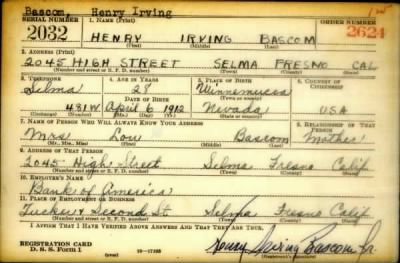 Bascom, Henry Irving
SERIAL NUMBER 1. NAME (Print) ORDER NUMBER
2032 HENRY IRVING BASCOM 2624
(First) (Middle) (Last)
2. ADDRESS (Print)
2045 HIGH STREET SELMA FRESNO CAL
(Number and street or R. F. D. number) (Town) (County) (State)
3. TELEPHONE 4. AGE IN YEARS 5. PLACE OF BIRTH 6. COUNTRY OF CITIZENSHIP
Selma 28 Winnemucca
DATE OF BIRTH (Town or county)
481W April 6 1912 Nevada USA
(Exchange) (Number) (Mo.) (Day) (Yr.) (State or country)
7. NAME OF PERSON WHO WILL ALWAYS KNOW YOUR ADDRESS 8. RELATIONSHIP OF THAT PERSON
Mrs Lou Bascom Mother
(Mr., Mrs., Miss) (First) (Middle) (Last)
9. ADDRESS OF THAT PERSON
2045 High Street Selma Fresno Calif
(Number and street or R. F. D. number) (Town) (County) (State)
10. EMPLOYER'S NAME
Bank of America
11. PLACE OF EMPLOYMENT OR BUSINESS
Tucker & Second St. Selma Fresno Calif
(Number and street or R. F. D. number) (Town) (County) (State)
I AFFIRM THAT I HAVE VERIFIED ABOVE ANSWERS AND THAT THEY ARE TRUE.
REGISTRATION CARD
D. S. S. FORM 1 (over) Henry Irving Bascom Jr.